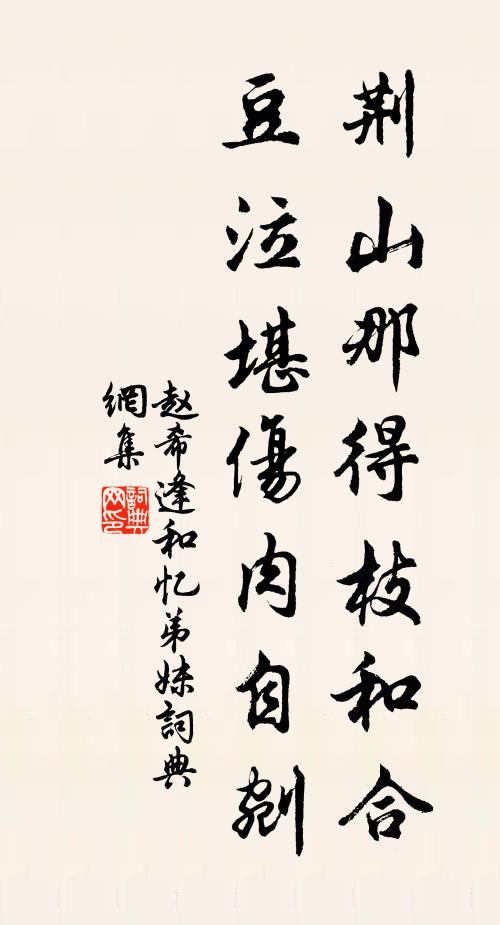 荆山那得枝和合
豆泣堪傷肉自剜
赵希逢和忆弟妹詞典
網集
詞典
网印